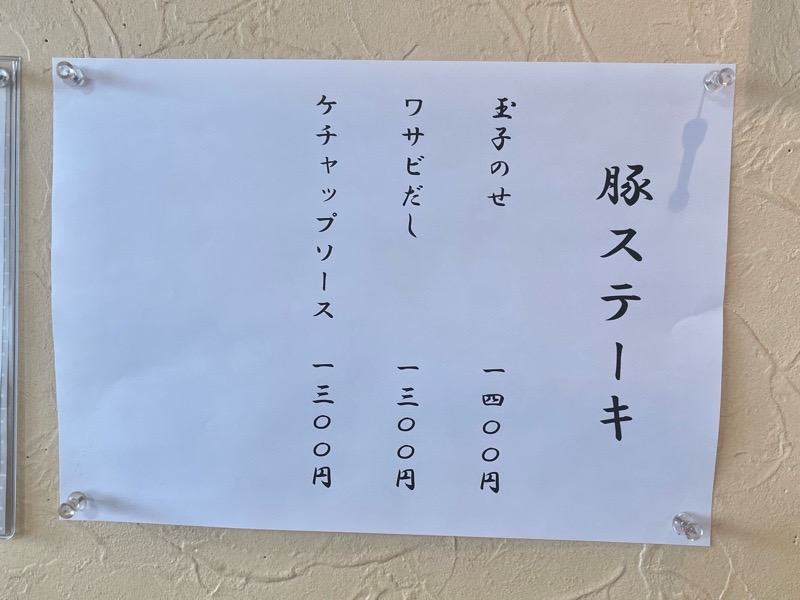 豚ステーキ
玉子のせ 一四〇〇円
ワサビだし 一三〇〇円
ケチャップソース 一三〇〇円